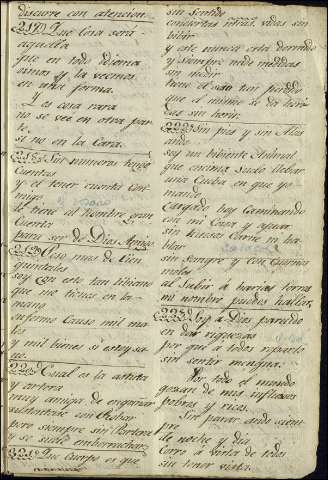 discurre con atencion.
217 Que Cosa será
aquella
que en todo idioma
vimos y la vemos
en una forma.
Y es cosa rara
no se vee en otra par
te
si no en la Cara.
218 Sin numeros tengo
Cuentas
y el tener cuenta con
migo
le tiene al hombre gran
Cuenta
para ser de Dios Amigo
219 Peso mas de Cien
quintales
soy con este tan bibiente
que me tienes en la
mano
enfermo Causo mil ma
les
y mil bienes si estoy sa
no.
220 Cual es la artista
y
muy amiga de engañar
sustentase con Robar
pero siempre sin
y se suele emborrachar
221 Que cuerpo es que
sin Sentido
concierta ntras. vidas sin
bibir
y este nunca esta dormido
y siempre mide medidas
sin medir
tiene el son tan perdido
que el mismo se da heridas
sin herir.
222 Sin pies y sin Alas
ando
soy un bibiente Animal
que encima suelo llebar
una Cueba en que yo
mando
Cargado boy Caminando
con mi Casa y ajuar
sin huesos Carne ni ha
blar
sin sangre y con Cuernos
moles
al Subir á barias torres
mi nombre puedes hallar.
223 Soy á Dios parecido
en dar riquezas
por que á todos reparto
sin sentir mengua.
Por todo el mundo
gozan de mis influxos
pobres y ricos.
Sin parar ando siem
pre
de noche y dia
Corro á vista de todos
sin tener vista.